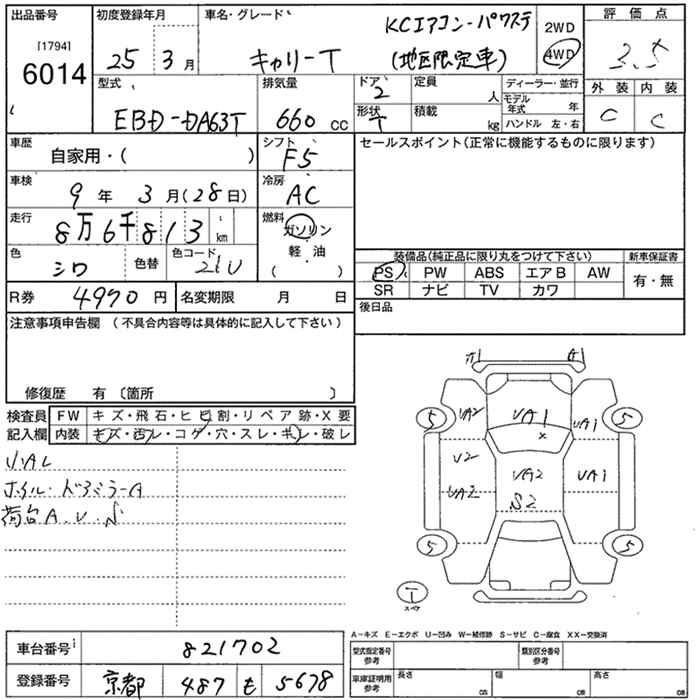 出品番号
[1794]
6014
初度登録年月
25 3 月
車名・グレード
キャリーT
KCエアコン・パワステ
(地区限定車)
2WD
4WD
評価点
3.5
外装 内装
C C
型式
EBD-DA63T
排気量
660 cc
ドア
2
形状
T
定員
人
積載
kg
ディーラー・並行
モデル年式 年
ハンドル 左・右
車歴
自家用・( )
シフト
F5
車検
9 年 3 月(28日)
冷房
AC
走行
8万6千813 km
燃料
ガソリン
軽・油
( )
色
シロ
色替
色コード
21U
R券 4970 円
名変期限 月 日
セールスポイント(正常に機能するものに限ります)
装備品(純正品に限り丸をつけて下さい)
PS PW ABS エアB AW
SR ナビ TV カワ
新車保証書
有・無
後日品
注意事項申告欄 (不具合内容等は具体的に記入して下さい)
修復歴 有 〔箇所 〕
検査員
記入欄
FW キズ・飛石・ヒビ割・リペア跡・X要
内装 キズ・汚レ・コゲ・穴・スレ・キレ・破レ
U.AL
ホイル・ドアミラーA
荷台A.U.S
A A
5 UA2 UA1 UA1 5
×
U2 UA2 UA1
UA2 S2
5 5
T
スペア
A-キズ E-エクボ U-凹み W-補修跡 S-サビ C-腐食 XX-交換済
車台番号 821702
登録番号 京都 487 も 5678
型式指定番号
参考
類別区分番号
参考
車庫証明用
参考
長さ cm 幅 cm 高さ cm